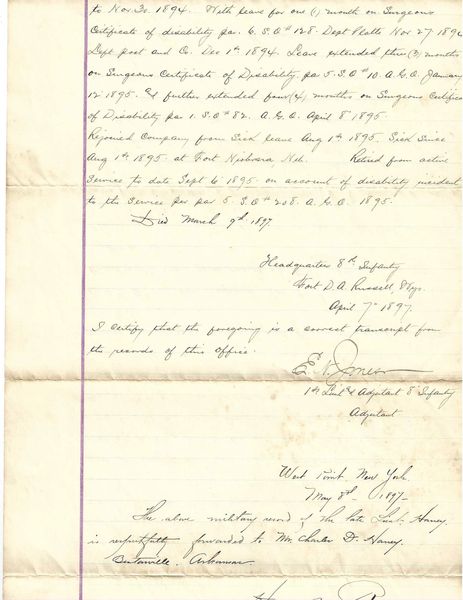 to Nov 30. 1894. With leave for one (1) month on Surgeons
Certificate of disability par. 6. S.O.# 128. Dept Platte Nov 27 1894
Left post and Co. Dec 1st 1894. Leave extended three (3) months
on Surgeons Certificate of Disability par 5. S.O.# 10. A.G.O. January
12 1895. & further extended four (4) months on Surgeons Certificate
of Disability par 1. S.O.# 82. A.G.O. April 8 1895.
Rejoined Company from Sick leave Aug 1st 1895. Sick Since
Aug 1st 1895 at Fort Niobrara Neb. Retired from active
Service to date Sept 6 1895 on account of disability incident
to the Service per par 5. S.O.# 208. A.G.O. 1895.
Died March 9th 1897.
Headquarters 8th Infantry
Fort D. A. Russell, Wyo.
April 7th 1897.
I certify that the foregoing is a correct transcript from
the records of this office.
1st Lieut & Adjutant 8" Infantry
Adjutant
West Point, New York.
May 8th 1897-
The above military record of the late Lieut. Haney
is respectfully forwarded to Mr. Charles D. Haney.
Bentonville, Arkansas